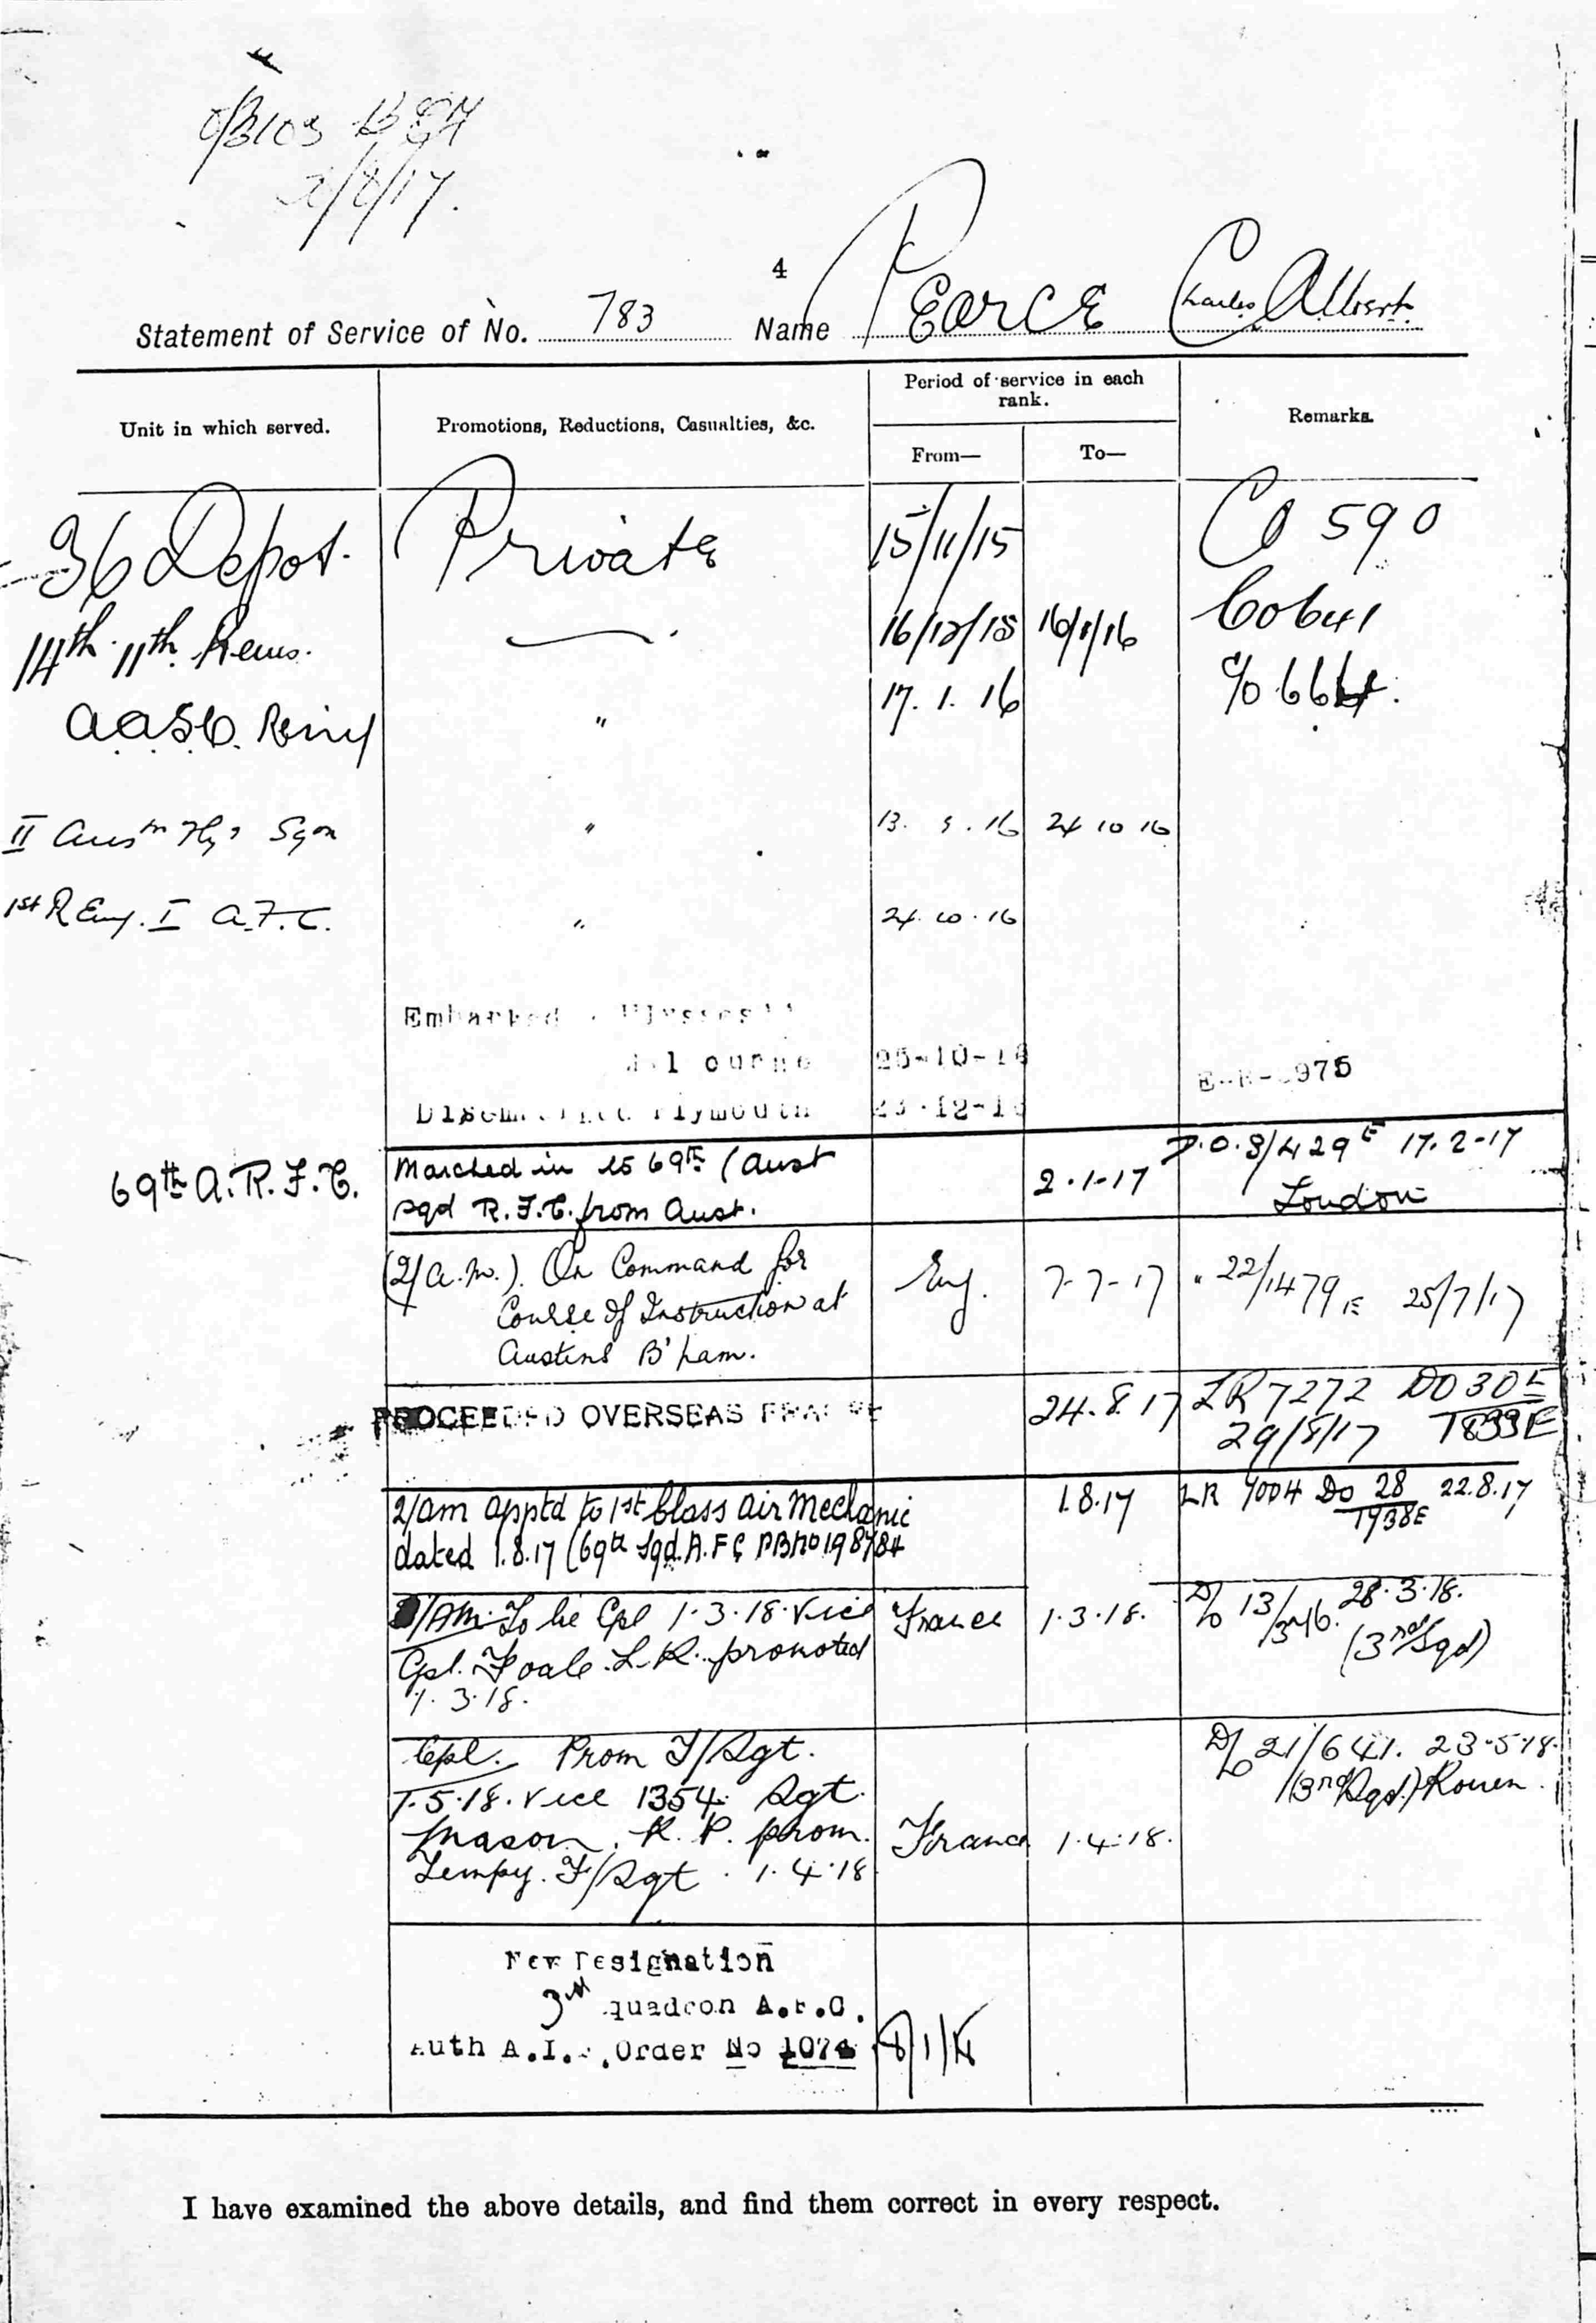 2/8/17.
4
Statement of Service of No. 783 Name PEARCE Charles Albert.
Unit in which served. Promotions, Reductions, Casualties, &c. Period of service in each rank. Remarks.
From— To—
36 Depot. Private 15/11/15 CO 590
14th 11th Reins. 16/12/15 16/1/16 Co 641
A.A.S.C. Reinf " 17. 1. 16 C/o 664.
II Ausn Flyg Sqn " 13. 9. 16 24 10 16
1st Reinf. I A.F.C. " 24. 10. 16
Embarked Ulysses
Melbourne 25-10-16 975
Disembarked Plymouth
69th A.R.F.C. Marched in to 69th (Aust
sqd R.F.C. from Aust. 2.1.17 D.O.8/429E 17.2.17
London
(2/A.M.). On Command for
Course of Instruction at
Austins B'ham. Eng. 7-7-17 " 22/1479E 25/7/17
PROCEEDED OVERSEAS FRANCE 24.8.17 LR 7272 DO 30E
29/8/17 1899E
2/AM apptd to 1st Class Air Mechanic 1.8.17 LR 7004 Do 28 22.8.17
1738E
dated 1.8.17 (69th Sqd. A.F.C
/AM. To be Cpl 1.3.18. Vice France 1.3.18. D/o 13/346. 28.3.18.
(3rd Sqd)
Cpl. Foale L.R. promoted
1.3.18.
Cpl. Prom T/Sgt. D/o 21/641. 23.5.18.
(3rd Sqd.) Rouen.
1.5.18. Vice 1354 Sgt.
Mason, R. P. prom. France 1.4.18.
Tempy. F/Sgt. 1.4.18
New Designation
3rd Squadron A.F.C.
Auth A.I.F. Order No
I have examined the above details, and find them correct in every respect.